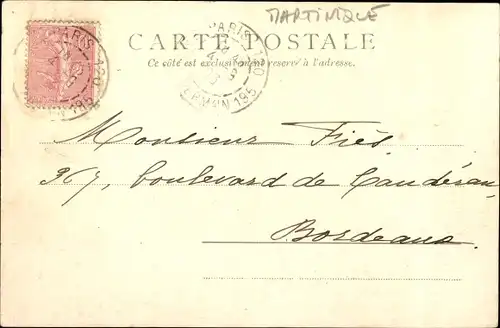 MARTINIQUE
CARTE POSTALE
Ce côté est exclusivement réservé à l'adresse.
PARIS 120
PARIS 120
Monsieur Fiès
367, boulevard de Caudéran
Bordeaux